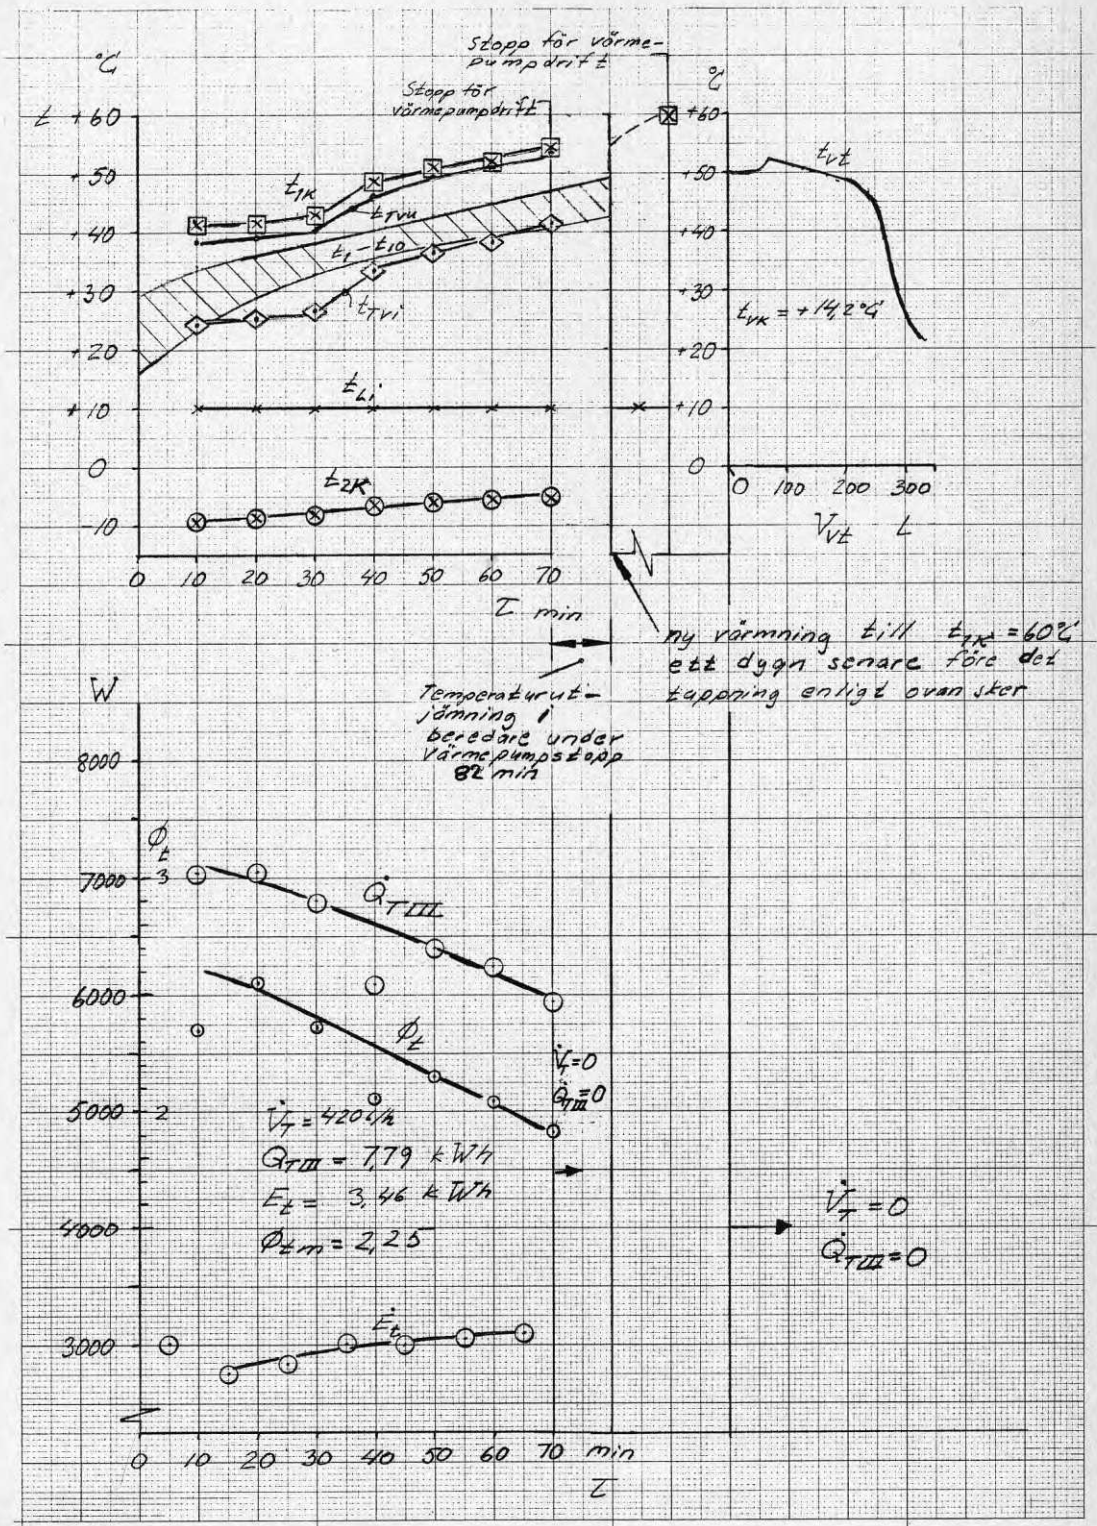 Stopp för värme-
pumpdrift
Stopp för
värmepumpdrift
°C
t +60
+50
+40
+30
+20
+10
0
-10
t1K
tTvu
t1-t10
tTvi
tLi
t2K
0 10 20 30 40 50 60 70
τ min
°C
+60
+50
+40
+30
+20
+10
0
tvt
tvk = +14,2°C
0 100 200 300
Vvt L
ny värmning till t1K = 60°C
ett dygn senare före det
tappning enligt ovan sker
Temperaturut-
jämning i
beredare under
värmepumpstopp
82 min
W
8000
7000
6000
5000
4000
3000
Φt
3
2
Q̇TIII
Φt
V̇T=0
Q̇TIII=0
V̇T = 420 l/h
QTIII = 7,79 kWh
Et = 3,46 kWh
Φtm = 2,25
V̇T = 0
Q̇TIII = 0
Ėt
0 10 20 30 40 50 60 70 min
τ